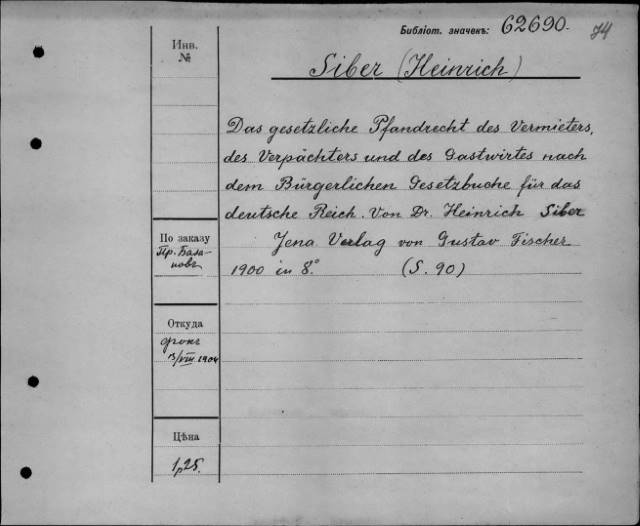 Библіот. значекъ: 62690. 74
Инв.
№
Siber (Heinrich)
Das gesetzliche Pfandrecht des Vermieters,
des Verpächters und des Gastwirtes nach
dem Bürgerlichen Gesetzbuche für das
deutsche Reich. Von Dr. Heinrich Siber
Jena Verlag von Gustav Fischer
1900 in 8.° (S. 90)
По заказу
Пр. База-
новъ
Откуда
фокъ
13/VIII 1904
Цѣна
1р25.